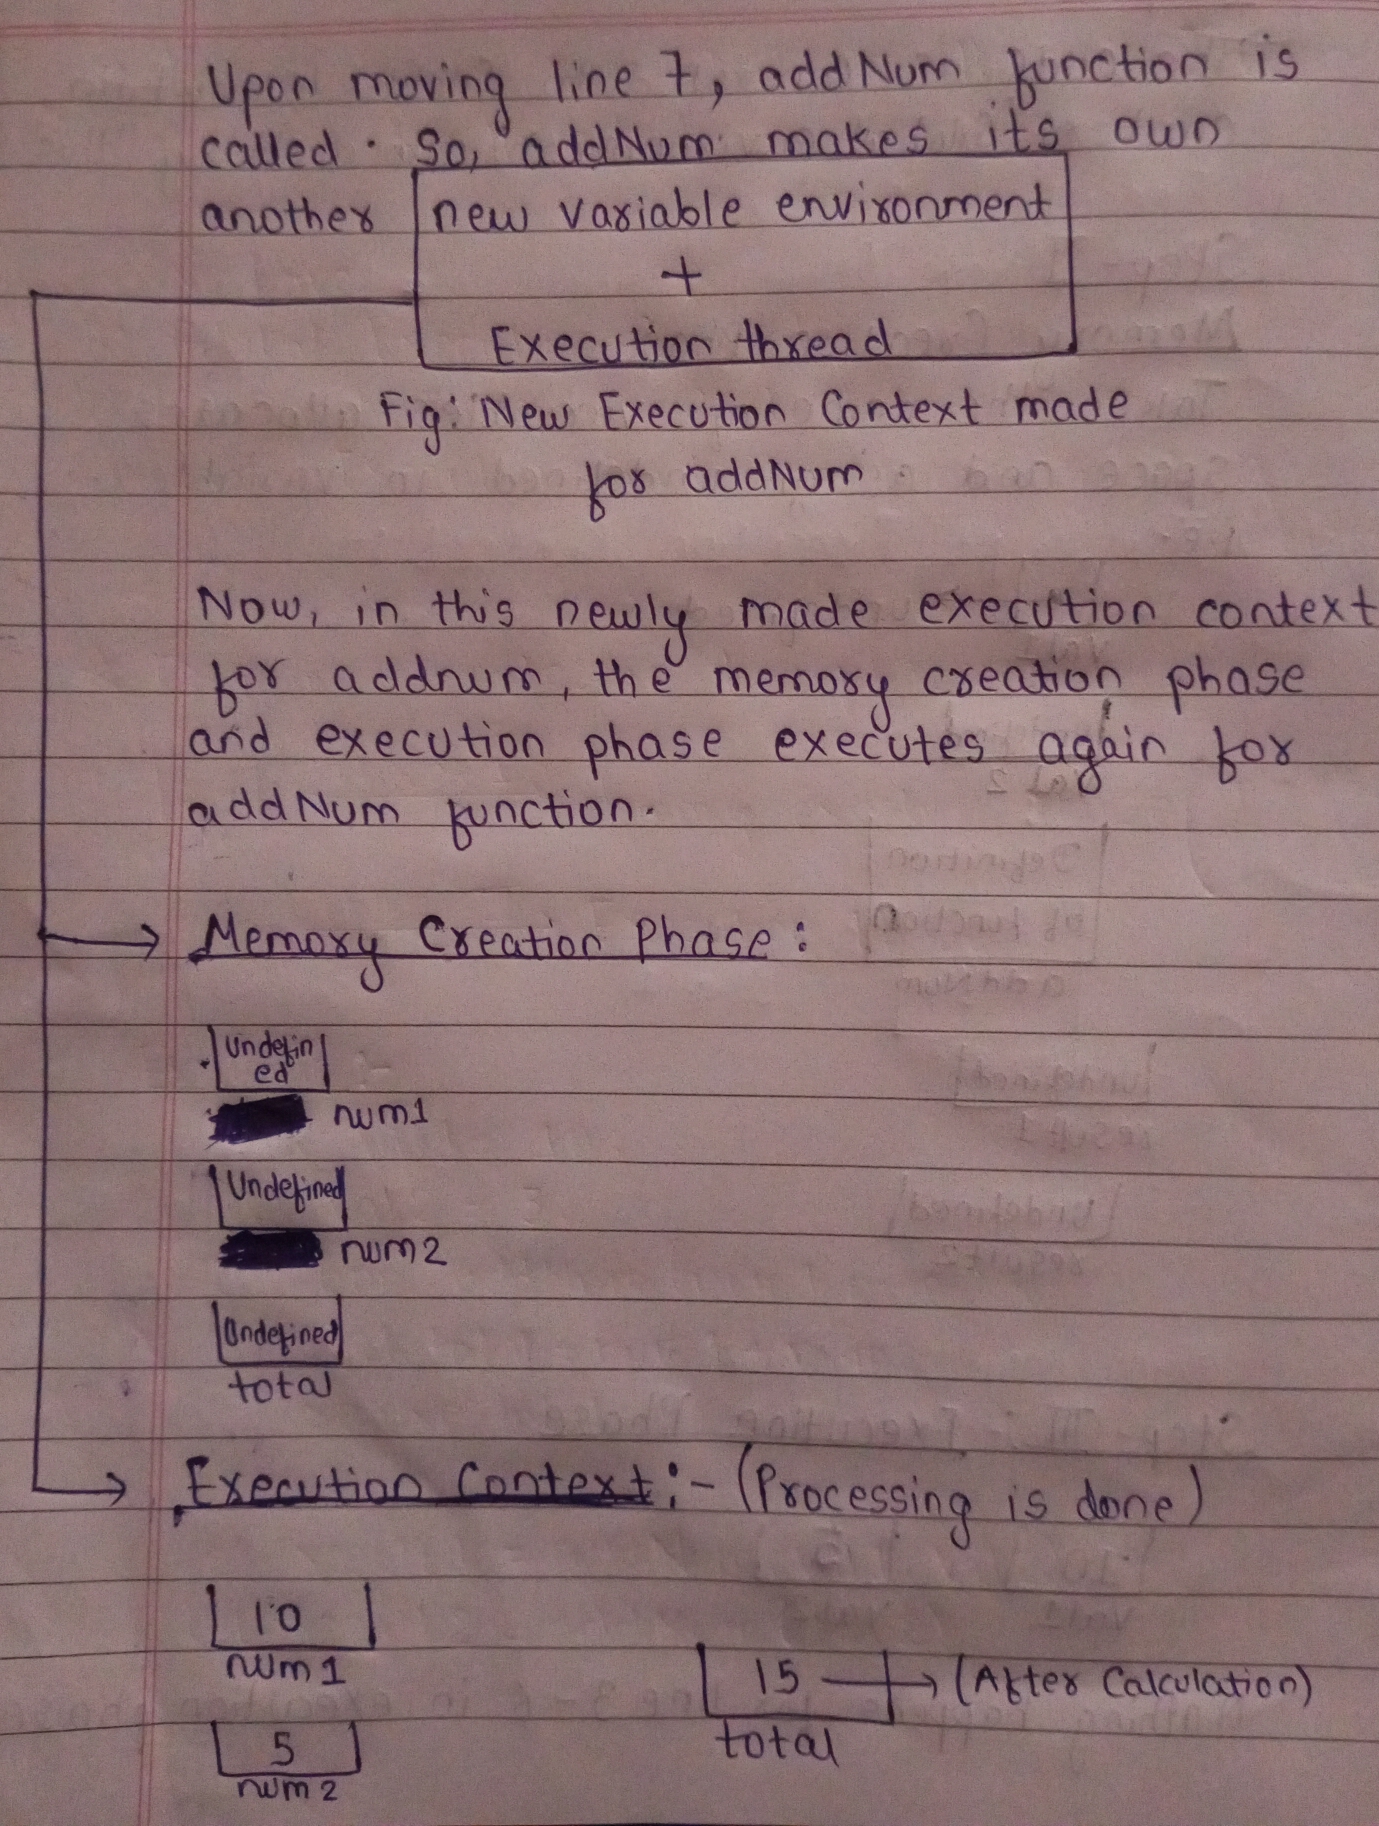 Upon moving line 7, addNum function is
called. So, addNum makes its own
another new variable environment
+
Execution thread
Fig: New Execution Context made
for addNum.
Now, in this newly made execution context
for addnum, the memory creation phase
and execution phase executes again for
addNum function.
Memory Creation Phase:
Undefin
ed
num1
Undefined
num2
Undefined
total
Execution Context:- (Processing is done)
10
num1
15 → (After Calculation)
total
5
num2